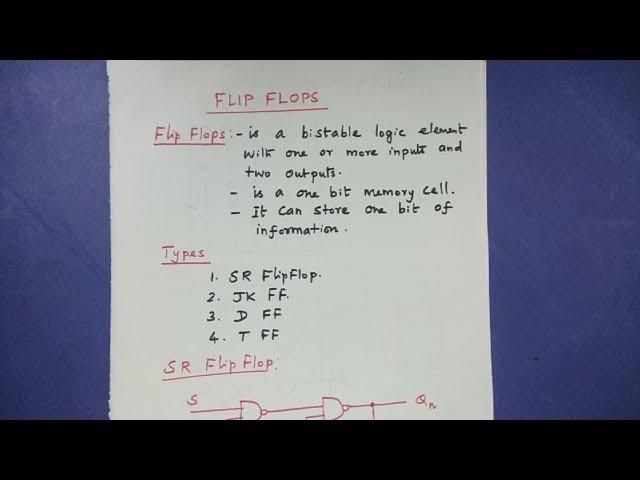 FLIP FLOPS
Flip Flops:- is a bistable logic element
with one or more inputs and
two outputs.
- is a one bit memory cell.
- It can store one bit of
information.
Types
1. SR FlipFlop.
2. JK FF.
3. D FF
4. T FF
SR FlipFlop:
S Qn